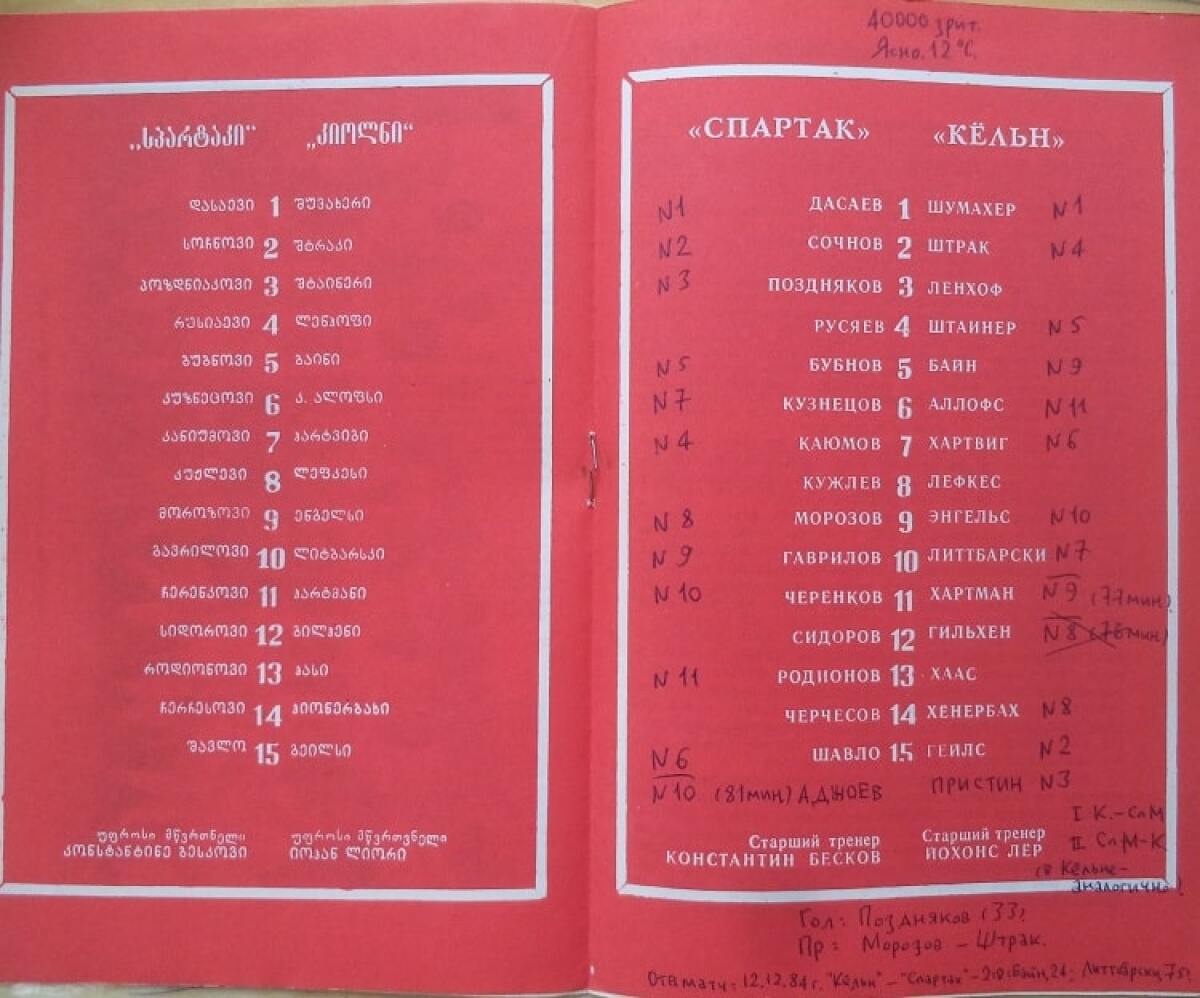 „სპარტაკი“ „კიოლნი“
დასაევი 1 შუმახერი
სოჩნოვი 2 შტრაკი
პოზდნიაკოვი 3 შტაინერი
რუსიაევი 4 ლენჰოფი
ბუბნოვი 5 ბაინი
კუზნეცოვი 6 კ. ალოფსი
კაიუმოვი 7 ჰარტვიგი
კუჟლევი 8 ლეფკესი
მოროზოვი 9 ენგელსი
გავრილოვი 10 ლიტბარსკი
ჩერენკოვი 11 ჰარტმანი
სიდოროვი 12 გილჰენი
როდიონოვი 13 ჰასი
ჩერჩესოვი 14 ჰიონერბახი
შავლო 15 გეილსი
უფროსი მწვრთნელი უფროსი მწვრთვნელი
კონსტანტინე ბესკოვი იოჰან ლიორი
40000 зрит.
Ясно. 12°С.
«СПАРТАК» «КЁЛЬН»
N1 ДАСАЕВ 1 ШУМАХЕР N1
N2 СОЧНОВ 2 ШТРАК N4
N3 ПОЗДНЯКОВ 3 ЛЕНХОФ
РУСЯЕВ 4 ШТАИНЕР N5
N5 БУБНОВ 5 БАИН N9
N7 КУЗНЕЦОВ 6 АЛЛОФС N11
N4 КАЮМОВ 7 ХАРТВИГ N6
КУЖЛЕВ 8 ЛЕФКЕС
N8 МОРОЗОВ 9 ЭНГЕЛЬС N10
N9 ГАВРИЛОВ 10 ЛИТТБАРСКИ N7
N10 ЧЕРЕНКОВ 11 ХАРТМАН N9 (77мин)
СИДОРОВ 12 ГИЛЬХЕН N8 (76мин)
N11 РОДИОНОВ 13 ХААС
ЧЕРЧЕСОВ 14 ХЕНЕРБАХ N8
N6 ШАВЛО 15 ГЕИЛС N2
N10 (81мин) АДЖОЕВ ПРИСТИН N3
I К.-СпМ
Старший тренер Старший тренер II СпМ-К
КОНСТАНТИН БЕСКОВ ЙОХОНС ЛЕР
(в Кёльне-
аналогично)
Гол: Поздняков (33)
Пр: Морозов – Штрак.
Отв матч: 12.12.84 г. "Кёльн" – "Спартак" – 2:0 (Байн, 24; Литтбарски, 75)